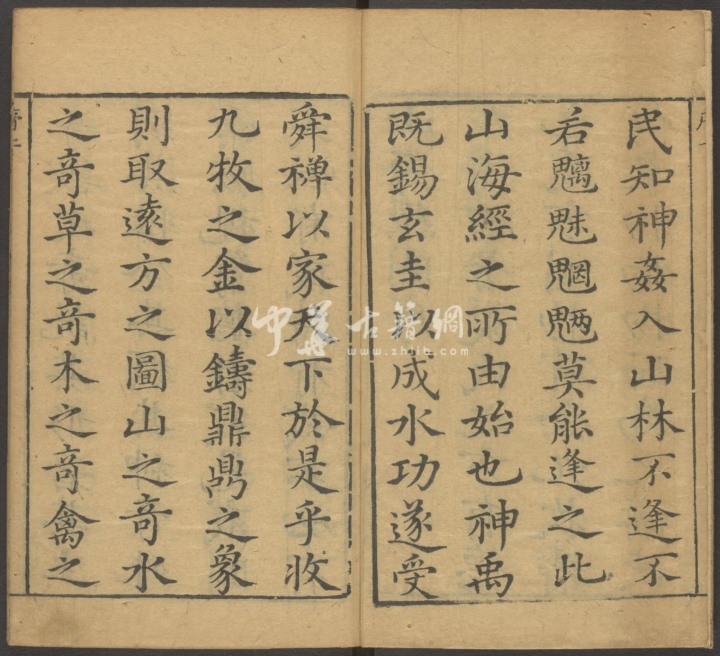 民知神姦入山林不逢不
若魑魅魍魎莫能逢之此
山海經之所由始也神禹
既錫玄圭以成水功遂受
舜禅以家天下於是乎收
九牧之金以鑄鼎鼎之象
則取遠方之圖山之奇水
之奇草之奇木之奇禽之
序二
中華古籍網
www.zhjlb.com